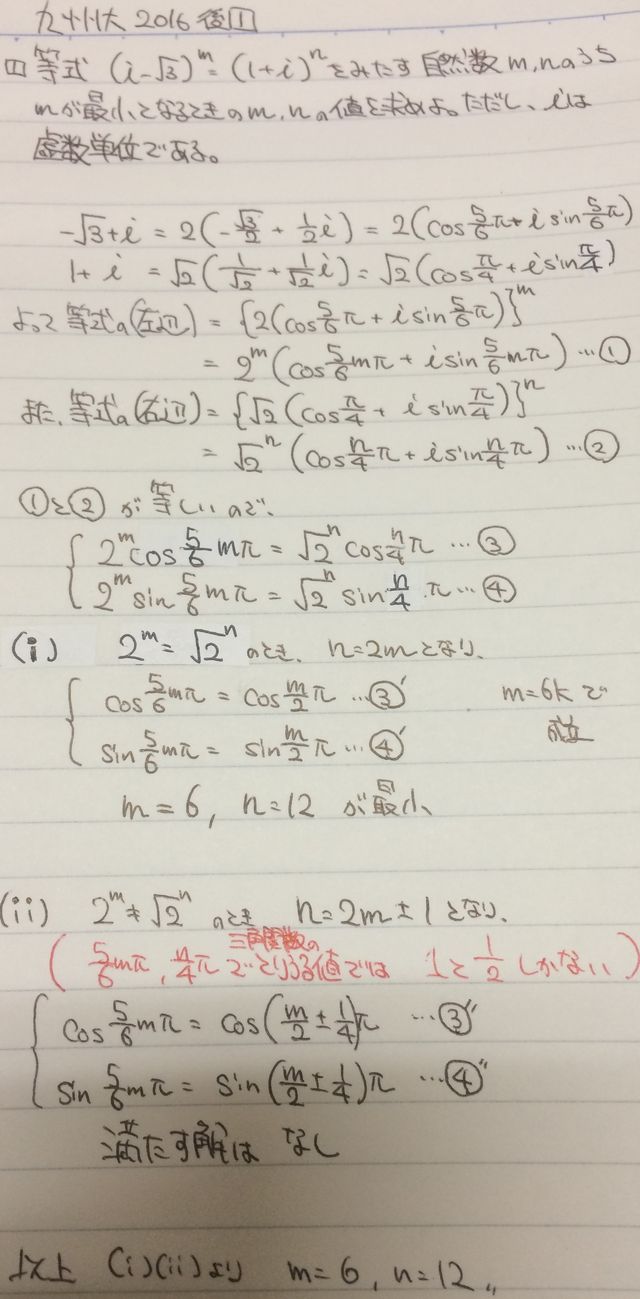 九州大 2016 後 1
(1) 等式 (i-√3)^m = (1+i)^n をみたす 自然数 m, n のうち
m が最小となるときの m, n の値を求めよ。ただし、i は
虚数単位である。
-√3+i = 2(-√3/2 + 1/2 i) = 2(cos 5/6 π + i sin 5/6 π)
1+i = √2(1/√2 + 1/√2 i) = √2(cos π/4 + i sin π/4)
よって 等式の(左辺) = {2(cos 5/6 π + i sin 5/6 π)}^m
= 2^m (cos 5/6 mπ + i sin 5/6 mπ) … ①
また、等式の(右辺) = {√2(cos π/4 + i sin π/4)}^n
= √2^n (cos n/4 π + i sin n/4 π) … ②
①と② が 等しいので、
2^m cos 5/6 mπ = √2^n cos n/4 π … ③
2^m sin 5/6 mπ = √2^n sin n/4 π … ④
(i) 2^m = √2^n のとき、 n=2m となり、
cos 5/6 mπ = cos m/2 π … ③' m=6k で
sin 5/6 mπ = sin m/2 π … ④' 成立
m=6, n=12 が最小
(ii) 2^m ≠ √2^n のとき n=2m±1 となり、
三角関数の
(5/6 mπ, n/4 π でとりうる値では 1と 1/2 しかない)
cos 5/6 mπ = cos(m/2 ± 1/4)π … ③''
sin 5/6 mπ = sin(m/2 ± 1/4)π … ④''
満たす解は なし
以上 (i)(ii)より m=6, n=12 〃